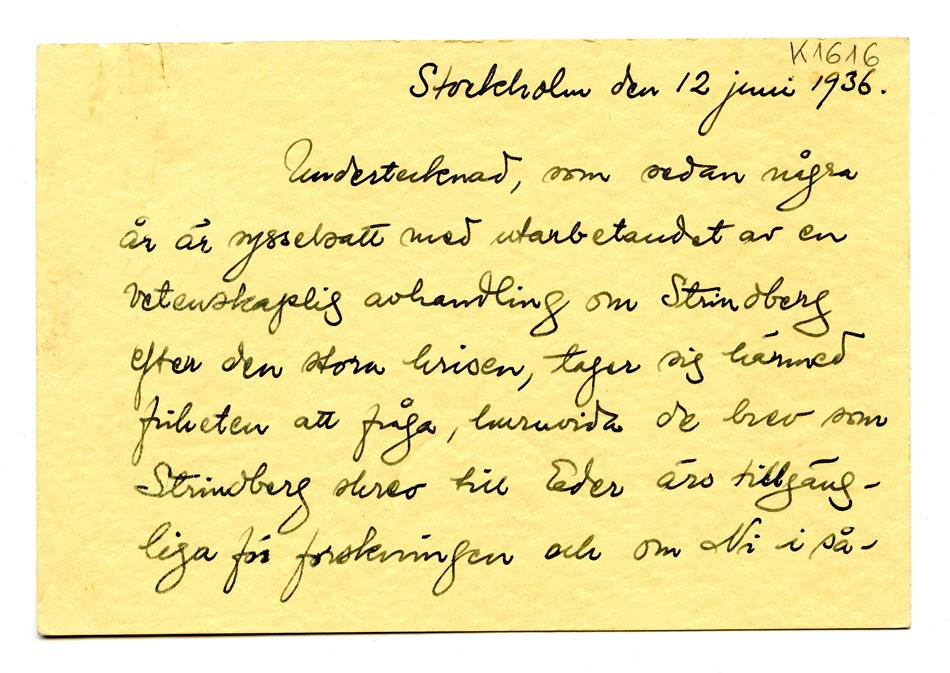 K1616
Stockholm den 12 juni 1936.
Undertecknad, som sedan några
år är sysselsatt med utarbetandet av en
vetenskaplig avhandling om Strindberg
efter den stora krisen, tager sig härmed
friheten att fråga, huruvida de brev som
Strindberg skrev till Eder äro tillgäng-
liga för forskningen och om Ni i så-